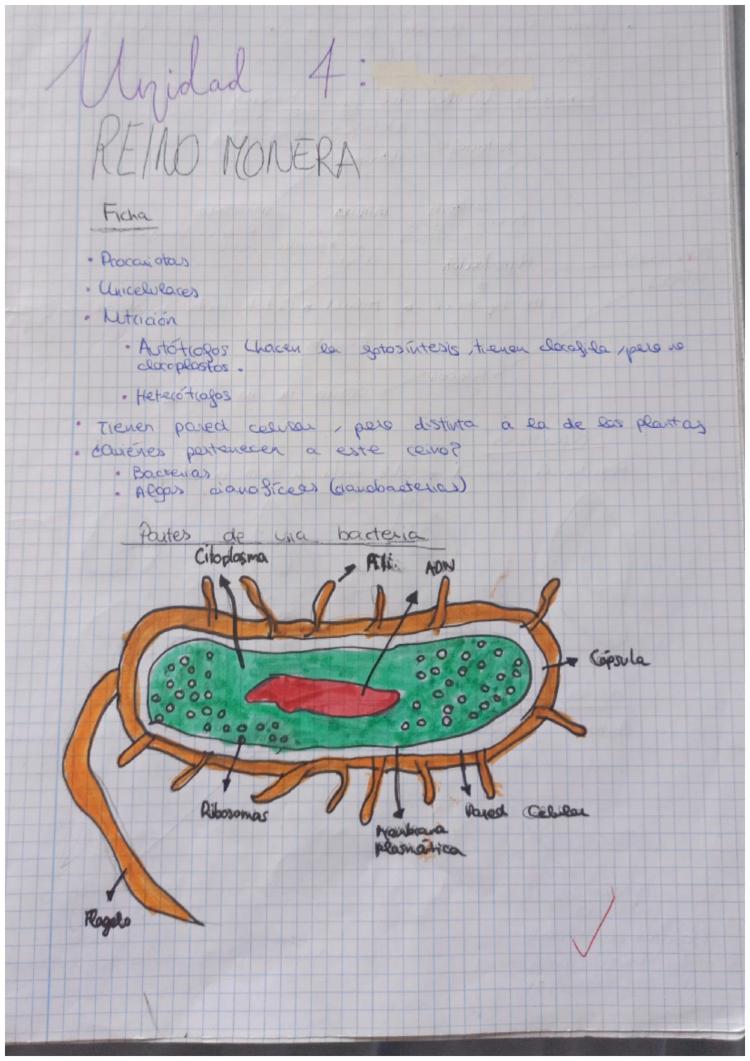 Unidad 4:
REINO MONERA
Ficha
· Procariotas
· Unicelulares
· Nutrición
· Autótrofos (hacen la fotosíntesis, tienen clorofila, pero no
cloroplastos.
· Heterótrofos
· Tienen pared celular, pero distinta a la de las plantas
· ¿Quiénes pertenecen a este reino?
· Bacterias
· Algas cianofíceas (cianobacterias)
Partes de una bacteria
Citoplasma
Pili.
ADN
Cápsula
Ribosomas
Pared Celular
Membrana
plasmática
Flagelo